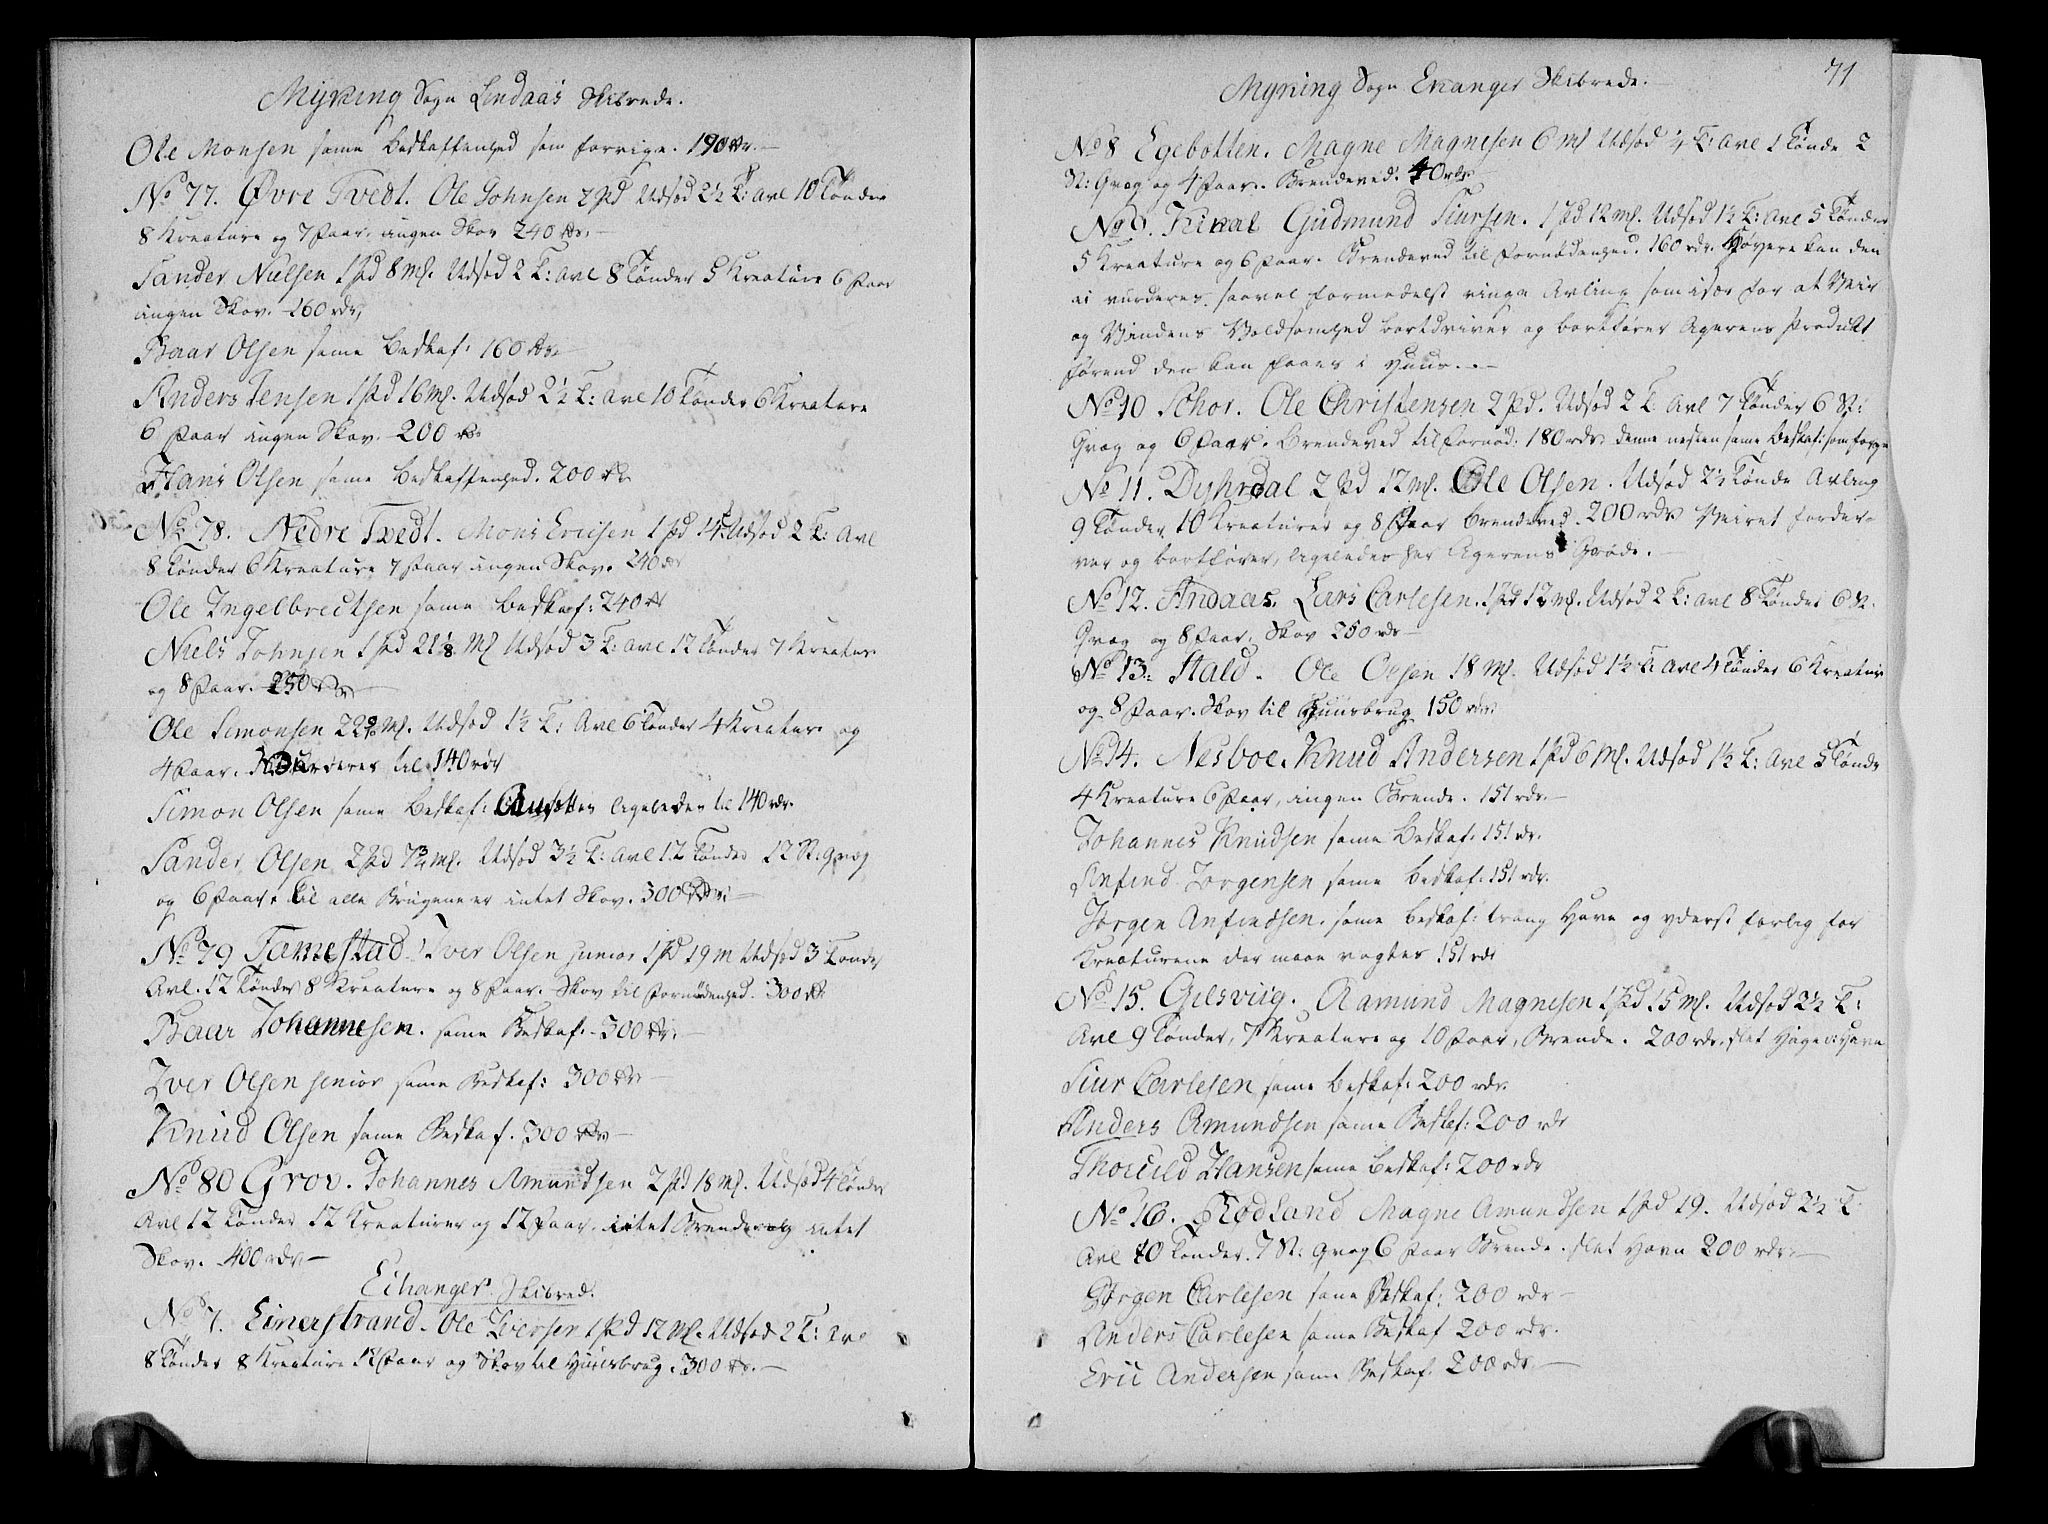 Myking Sogn Lindaas Skibrede.
Ole Monsen samme Beskaffenhed som forrige. 190 rdr.
No 77. Øvre Tvedt. Ole Johnsen 2 Pd Udsæd 2½ T: Avl 10 Tønder
8 Kreature og 7 Faar, ingen Skov 240 rdr.
Sander Nielsen 1 Pd 8 ml. Udsæd 2 T: Avl 8 Tønder 5 Kreature 6 Faar
ingen Skov. 160 rdr,
Baar Olsen samme Beskaf: 160 rdr
Anders Jensen 1 Pd 16 ml. Udsæd 2½ T: Avl 10 Tønder 6 Kreature
6 Faar ingen Skov. 200 rdr
Hans Olsen samme Beskaffenhed. 200 rdr
No 78. Nedre Tvedt. Mons Ericsen 1 Pd Udsæd 2 T: Avl
8 Tønder 6 Kreature 7 Faar ingen Skov. 240 rdr
Ole Ingelbrectsen samme Beskaf: 240 rdr
Niels Johnsen 1 Pd 21⅛ ml Udsæd 3 T: Avl 12 Tønder 7 Kreatur
og 8 Faar. 250 rdr
Ole Simonsen ml. Udsæd 1½ T: Avl 6 Tønder 4 Kreature og
4 Faar. til 140 rdr
Simon Olsen samme Beskaf: Ansættes ligeledes til 140 rdr.
Sander Olsen 2 Pd 7¾ ml. Udsæd 3½ T: Avl 12 Tønder 12 St: Qvæg
og 6 Faar. til alle Brugene er intet Skov. 300 rdr
No 79 Tamestad. Iver Olsen junior 1 Pd 19 m Udsæd 3 Tønder
Avl. 12 Tønder 8 Kreature og 8 Faar. Skov til Fornødenhed. 300 rdr
Baar Johannesen. samme Beskaf. 300 rdr.
Iver Olsen senior samme Beskaf: 300 rdr
Knud Olsen samme Beskaf. 300 rdr
No 80 Grov. Johannes Amundsen 2 Pd 18 ml. Udsæd 4 Tønder
Avl 12 Tønder 12 Kreaturer og 12 Faar. intet Brende og intet
Skov. 400 rdr
Eihanger Skibred.
No 7. Einerstrand. Ole Iversen 1 Pd 12 ml. Udsæd 2 T: Avl
8 Tønder 8 Kreature 12 Faar og Skov til Huusbrug. 300 rdr.
71
Myking Sogn Eihanger Skibrede.
No 8 Egebotten. Magne Magnesen 6 ml Udsæd ¼ T: Avl 1 Tønde 2
St: Qvæg og 4 Faar. Brendeved. 40 rdr
No 9. Gudmund Siursen. 1 Pd 12 ml. Udsæd 1½ T: Avl 5 Tønder
5 Kreature og 6 Faar. Brendeved til Fornødenhed. 160 rdr. Høyere kan den
ei vurderes, saavel formedelst ringe Avling som især for at Veir
og Vindens Voldsomhed bortdriver og bortfører Agerens Produkt
førend den kan faaes i Huus.
No 10 Schor. Ole Christensen 2 Pd. Udsæd 2 T: Avl 7 Tønder 6 St:
Qvæg og 6 Faar. Brendeved til Fornød: 180 rdr denne nesten samme Beskaf: som forige
No 11. Dyhrdal 2 Pd 12 ml. Ole Olsen. Udsæd 2½ Tønde Avling
9 Tønder, 10 Kreaturer og 8 Faar Brendeved. 200 rdr Veiret forder-
ver og bortfører, ligeledes her Agerens Grøde.
No 12. Andaas. Lars Carlesen. 1 Pd 12 ml. Udsæd 2 T: Avl 8 Tønder 6 St:
Qvæg og 8 Faar. Skov 250 rdr
No 13. Hald. Ole Olsen 18 ml. Udsæd 1½ T: Avl 4 Tønder 6 Kreature
og 8 Faar. Skov til Huusbrug 150 rdr.
No 14. Nesboe. Knud Andersen 1 Pd 6 ml. Udsæd 1½ T: Avl 5 Tønder
4 Kreature 6 Faar, ingen Brende. 151 rdr.
Johannes Knudsen samme Beskaf: 151 rdr.
Anfind Jorgensen samme Beskaf: 151 rdr.
Jørgen Anfindsen. samme Beskaf: trang Havn og yderst farlig for
Kreaturene der maae vogtes 151 rdr
No 15. Gilsviig. Aamund Magnesen 1 Pd 15 ml. Udsæd 2½ T:
Avl 9 Tønder, 7 Kreature og 10 Faar, Brende. 200 rdr. slet
Siur Carlesen samme Beskaf: 200 rdr
Anders Amundsen samme Beskaf: 200 rdr
Thorcild Hansen samme Beskaf: 200 rdr
No 16. Rødland Magne Amundsen 1 Pd 19. Udsæd 2½ T:
Avl 10 Tønder. 7 St: Qvæg 6 Faar Brende. slet Havn 200 rdr.
Jørgen Carlesen samme Beskaf: 200 rdr
Anders Carlesen samme Beskaf 200 rdr.
Eric Andersen samme Beskaf. 200 rdr.